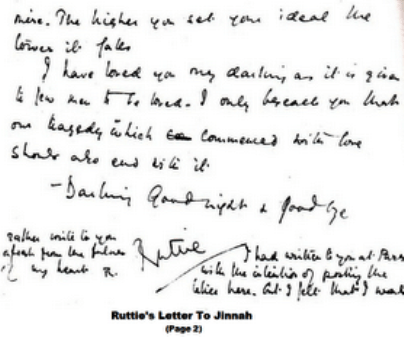 mire. The higher you set your ideal the
lower it falls
I have loved you my darling as it is given
to few men to be loved. I only beseech you that
our tragedy which commenced with love
should also end with it
- Darling Goodnight & Goodbye
Ruttie
I had written to you at Paris
with the intention of posting the
letter here. But I felt that I would
rather write to you
afresh from the fulness
of my heart R.
Ruttie's Letter To Jinnah
(Page 2)